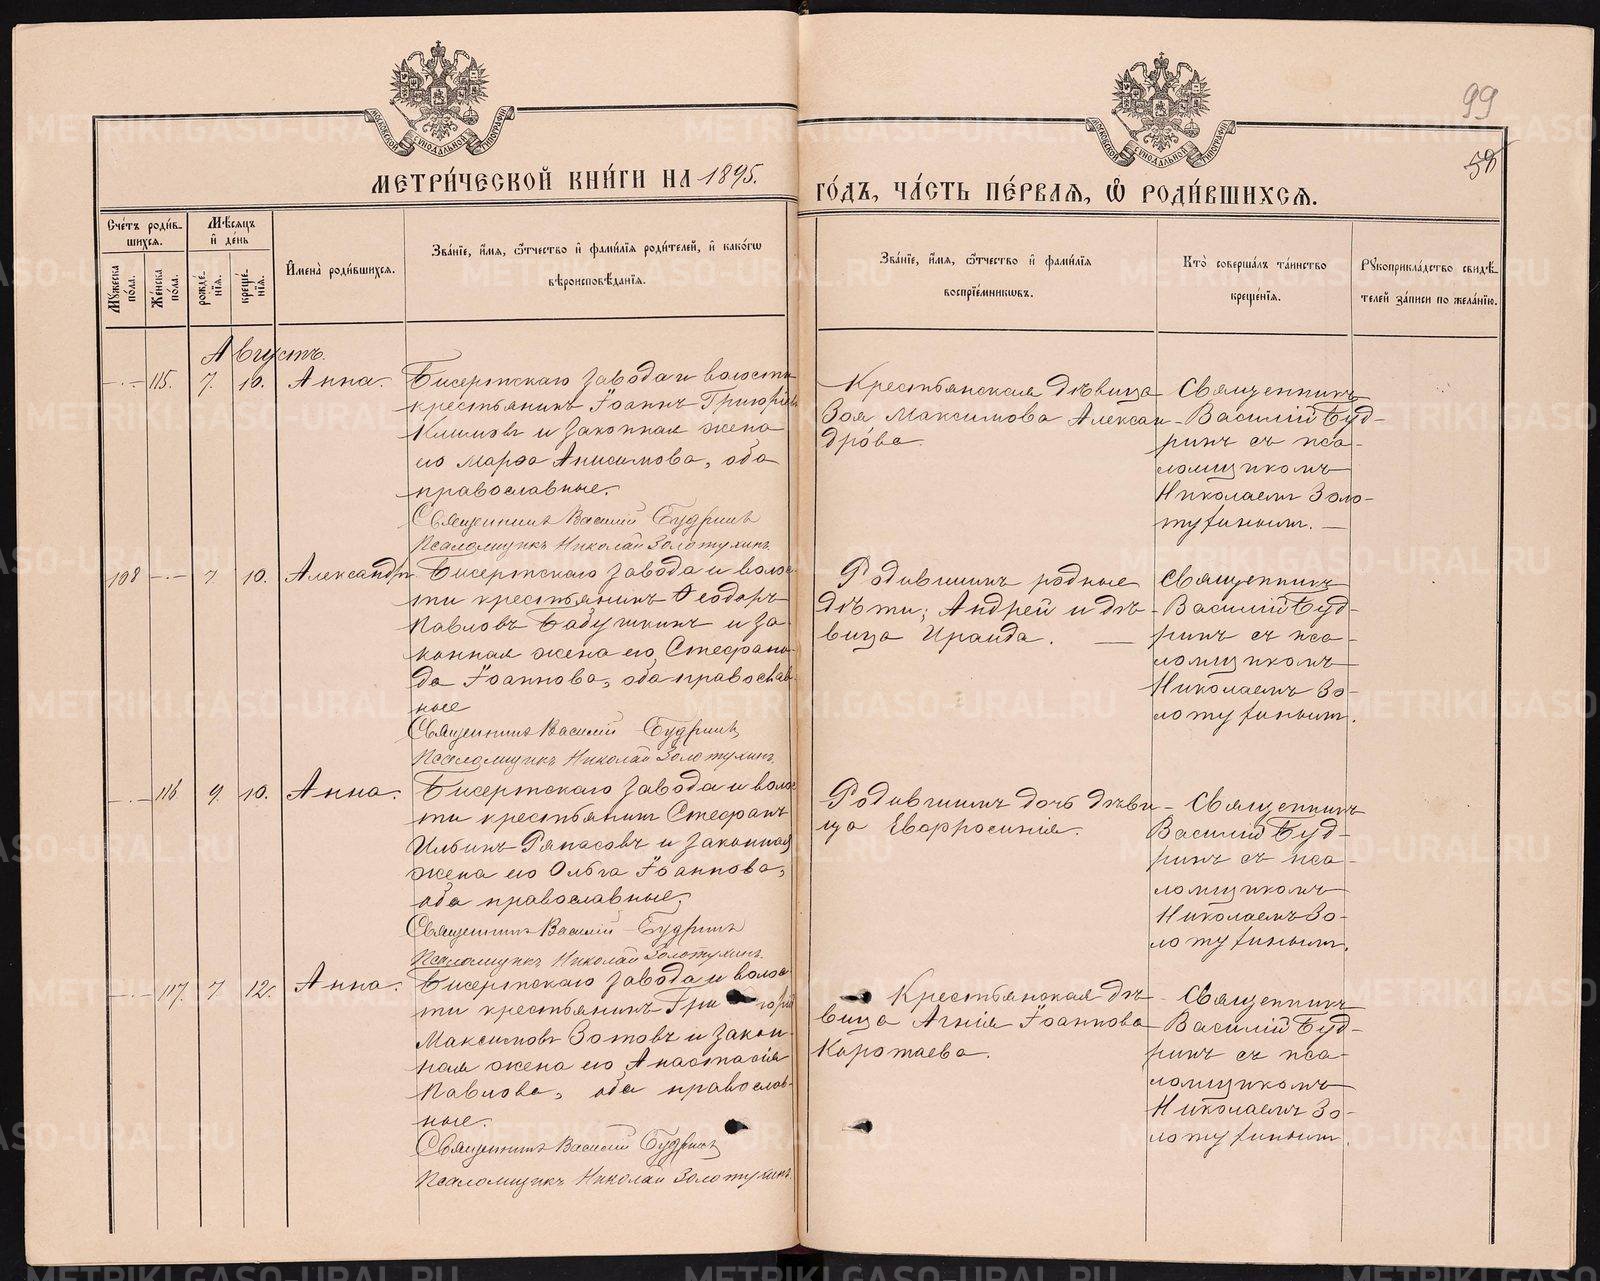 99
59
МОСКОВСКОЙ СУНОДАЛЬНОЙ ТИПОГРАФІИ
МОСКОВСКОЙ СУНОДАЛЬНОЙ ТИПОГРАФІИ
МЕТРИ́ЧЕСКОЙ КНИ́ГИ НА 1895.
ГО́ДЪ, ЧА́СТЬ ПЕ́РВАЯ, Ѽ РОДИ́ВШИХСЯ.
Сче́тъ роди́в-
шихся.
Мꙋ́жеска по́ла.
Же́нска по́ла.
Мѣ́сяцъ
и҆ де́нь
рожде́нїя.
креще́нїя.
И҆мена̀ роди́вшихся.
Зва́нїе, и҆́мя, ѻ҆́тчество и҆ фами́лїя роди́телей, и҆ како́гѡ
вѣроисповѣ́данїя.
Зва́нїе, и҆́мя, ѻ҆́тчество и҆ фами́лїя
воспрїе́мникѡвъ.
Кто̀ соверша́лъ та́инство
креще́нїя.
Рꙋкоприкла́дство свидѣ́-
телей за́писи по жела́нїю.
Августъ.
—·— 115. 7. 10. Анна.
Бисертскаго завода и волости
крестьянинъ Іоаннъ Григоріевъ
Климовъ и законная жена
его Марѳа Анисимова, оба
православные.
Священникъ Василій Будринъ
Псаломщикъ Николай Золотухинъ.
Крестьянская дѣвица
Зоя Максимова Алексан-
дрова.
Священникъ
Василій Буд-
ринъ съ пса-
ломщикомъ
Николаемъ Золо-
тухинымъ. —
108 —·— 7. 10. Александръ
Бисертскаго завода и волос-
ти крестьянинъ Ѳеодоръ
Павловъ Бабушкинъ и за-
конная жена его Стефани-
да Іоаннова, оба православ-
ные
Священникъ Василій Будринъ
Псаломщикъ Николай Золотухинъ.
Родившимъ родные
дѣти: Андрей и дѣ-
вица Ираида. —
Священникъ
Василій Буд-
ринъ съ пса-
ломщикомъ
Николаемъ Зо-
лотухинымъ.
—·— 116 9. 10. Анна.
Бисертскаго завода и волос-
ти крестьянинъ Стефанъ
Ильинъ Ряпасовъ и законная
жена его Ольга Іоаннова,
оба православные.
Священникъ Василій Будринъ
Псаломщикъ Николай Золотухинъ.
Родившимъ дочь дѣви-
ца Евфросинія.
Священникъ
Василій Буд-
ринъ съ пса-
ломщикомъ
Николаемъ Зо-
лотухинымъ.
—·— 117. 7 12. Анна.
Бисертскаго завода и волос-
ти крестьянинъ Григорій
Максимовъ Зотовъ и закон-
ная жена его Анастасія
Павлова, оба православ-
ные.
Священникъ Василій Будринъ
Псаломщикъ Николай Золотухинъ.
Крестьянская дѣ-
вица Агнія Іоаннова
Коротаева.
Священникъ
Василій Буд-
ринъ съ пса-
ломщикомъ
Николаемъ Зо-
лотухинымъ.
METRIKI.GASO-URAL.RU